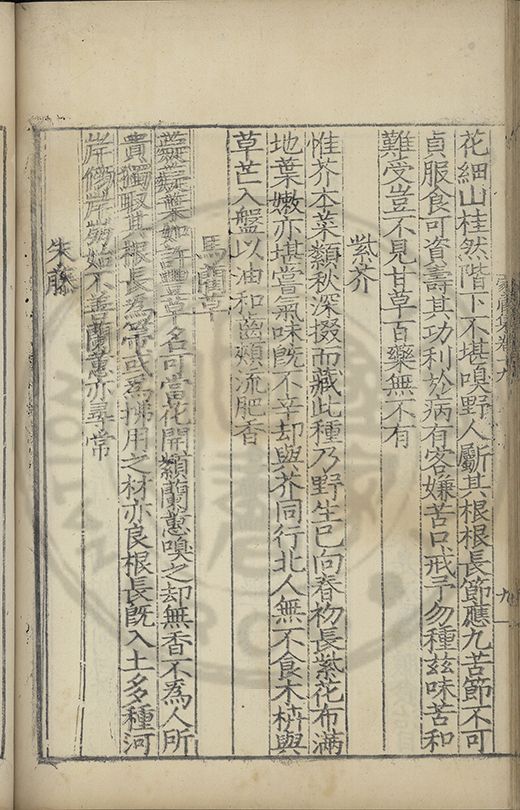 花細山桂然階下不堪嗅野人斸其根根長節應九苦節不可
貞服食可資壽其功利於病有客嫌苦口戒予勿種茲味苦和
難受豈不見甘草百藥無不有
紫芥
惟芥本菜纇秋深掇而藏此種乃野生已向春初長紫花布滿
地葉嫩亦堪嘗氣味旣不辛却與芥同行北人無不食木枿與
草芒入盤以油和齒頰流肥香
馬藺草
葉如許豐草名可當花開纇蘭蕙嗅之却無香不爲人所
貴獨取其根長爲帚或爲拂用之材亦良根長旣入土多種河
岸傍岸崩始不善蘭蕙亦尋常
朱藤
家藏集卷九
九